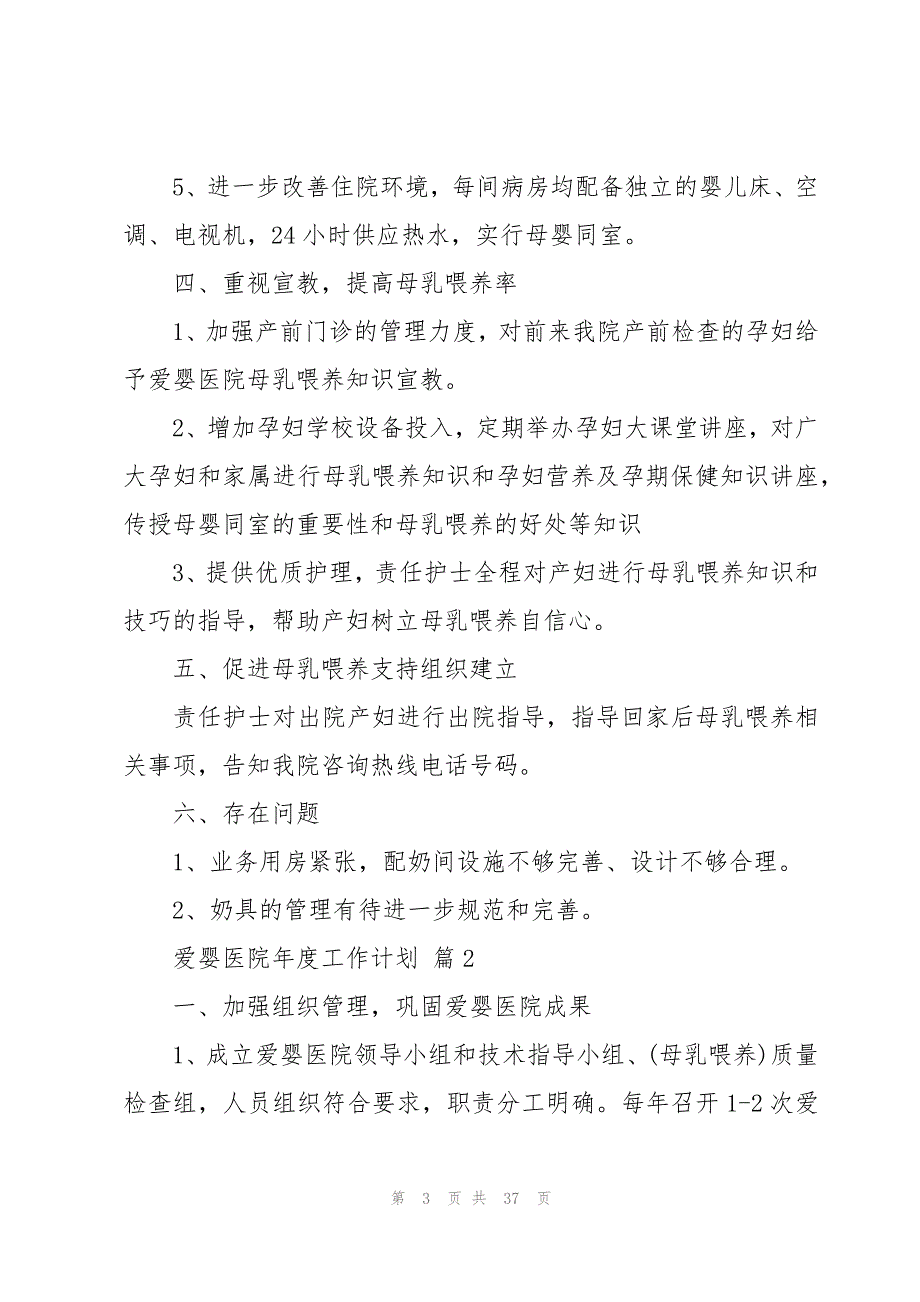 5、进一步改善住院环境，每间病房均配备独立的婴儿床、空
调、电视机，24 小时供应热水，实行母婴同室。
四、重视宣教，提高母乳喂养率
1、加强产前门诊的管理力度，对前来我院产前检查的孕妇给
予爱婴医院母乳喂养知识宣教。
2、增加孕妇学校设备投入，定期举办孕妇大课堂讲座，对广
大孕妇和家属进行母乳喂养知识和孕妇营养及孕期保健知识讲座，
传授母婴同室的重要性和母乳喂养的好处等知识
3、提供优质护理，责任护士全程对产妇进行母乳喂养知识和
技巧的指导，帮助产妇树立母乳喂养自信心。
五、促进母乳喂养支持组织建立
责任护士对出院产妇进行出院指导，指导回家后母乳喂养相
关事项，告知我院咨询热线电话号码。
六、存在问题
1、业务用房紧张，配奶间设施不够完善、设计不够合理。
2、奶具的管理有待进一步规范和完善。
爱婴医院年度工作计划 篇2
一、加强组织管理，巩固爱婴医院成果
1、成立爱婴医院领导小组和技术指导小组、(母乳喂养)质量
检查组，人员组织符合要求，职责分工明确。每年召开1-2次爱
第 3 页 共 37 页